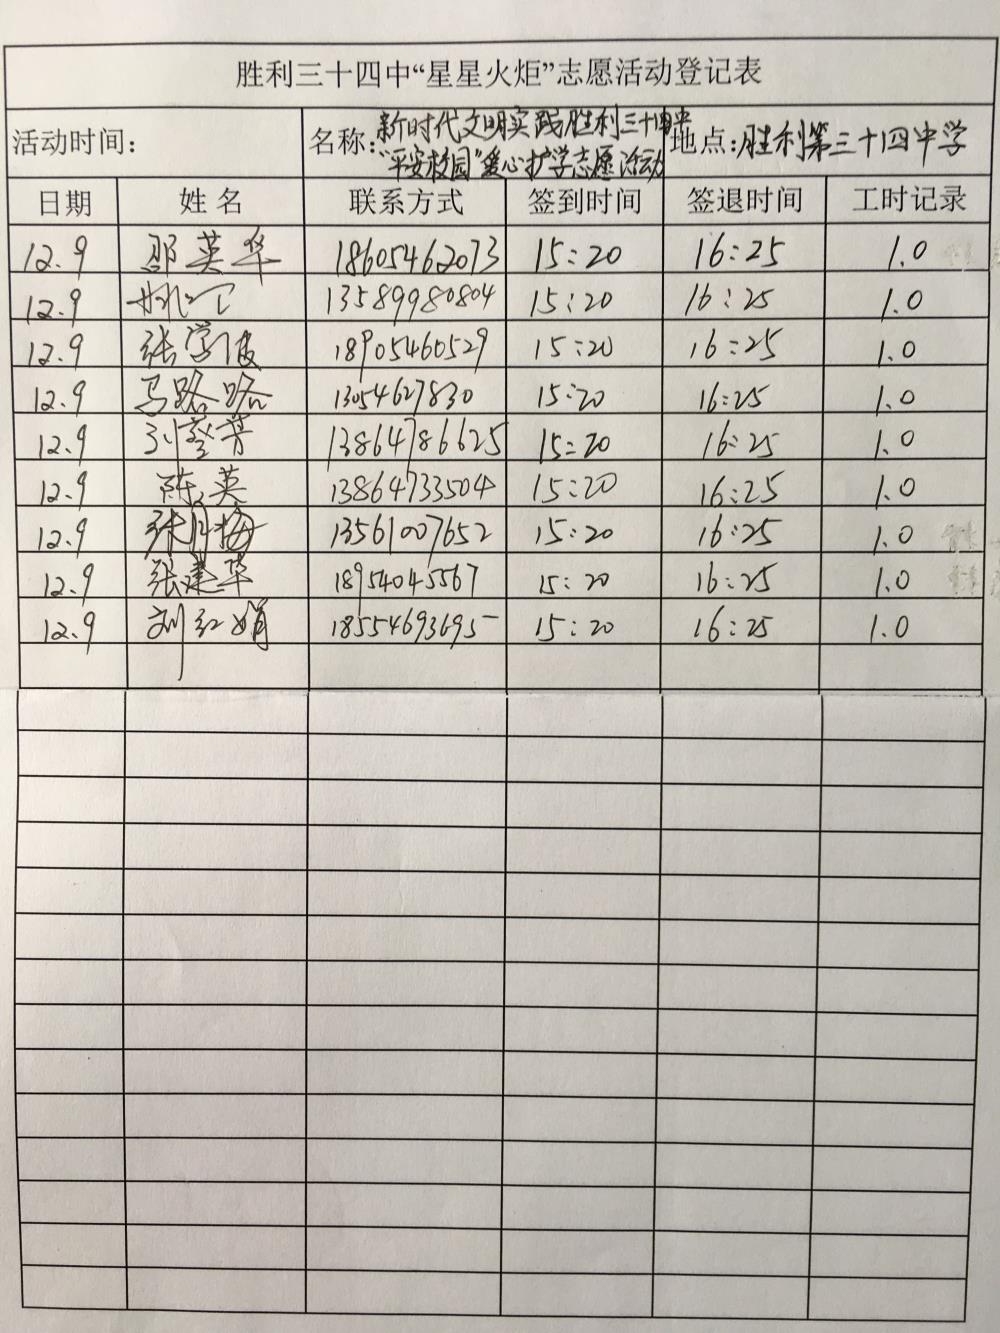 胜利三十四中“星星火炬”志愿活动登记表
活动时间: 名称: 新时代文明实践胜利三十四中 地点: 胜利第三十四中学
“平安校园”爱心护学志愿活动
日期 姓名 联系方式 签到时间 签退时间 工时记录
12.9 邵英华 18605462073 15:20 16:25 1.0
12.9 13589980804 15:20 16:25 1.0
12.9 张学波 18905460529 15:20 16:25 1.0
12.9 马路路 13054627830 15:20 16:25 1.0
12.9 13864786625 15:20 16:25 1.0
12.9 陈英 13864733504 15:20 16:25 1.0
12.9 张月梅 13561007652 15:20 16:25 1.0
12.9 张建华 18954045567 15:20 16:25 1.0
12.9 刘红娟 18554693695 15:20 16:25 1.0